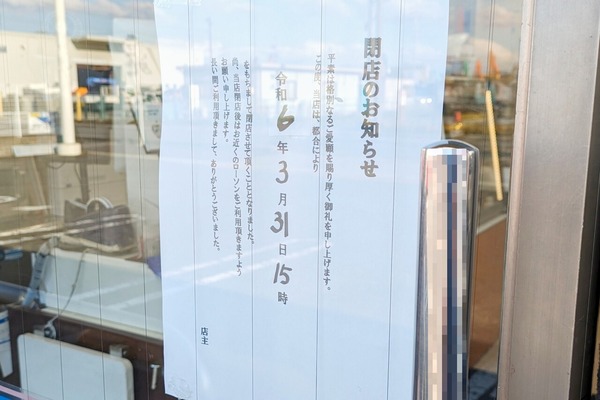 閉店のお知らせ
平素は格別なるご愛顧を賜り厚く御礼を申し上げます。
この度、当店は、都合により
令和6年3月31日15時
をもちまして閉店させて頂くこととなりました。
尚、当店閉店後はお近くのローソンをご利用頂きますよう
お願い申し上げます。
長い間ご利用頂きまして、ありがとうございました。
店主